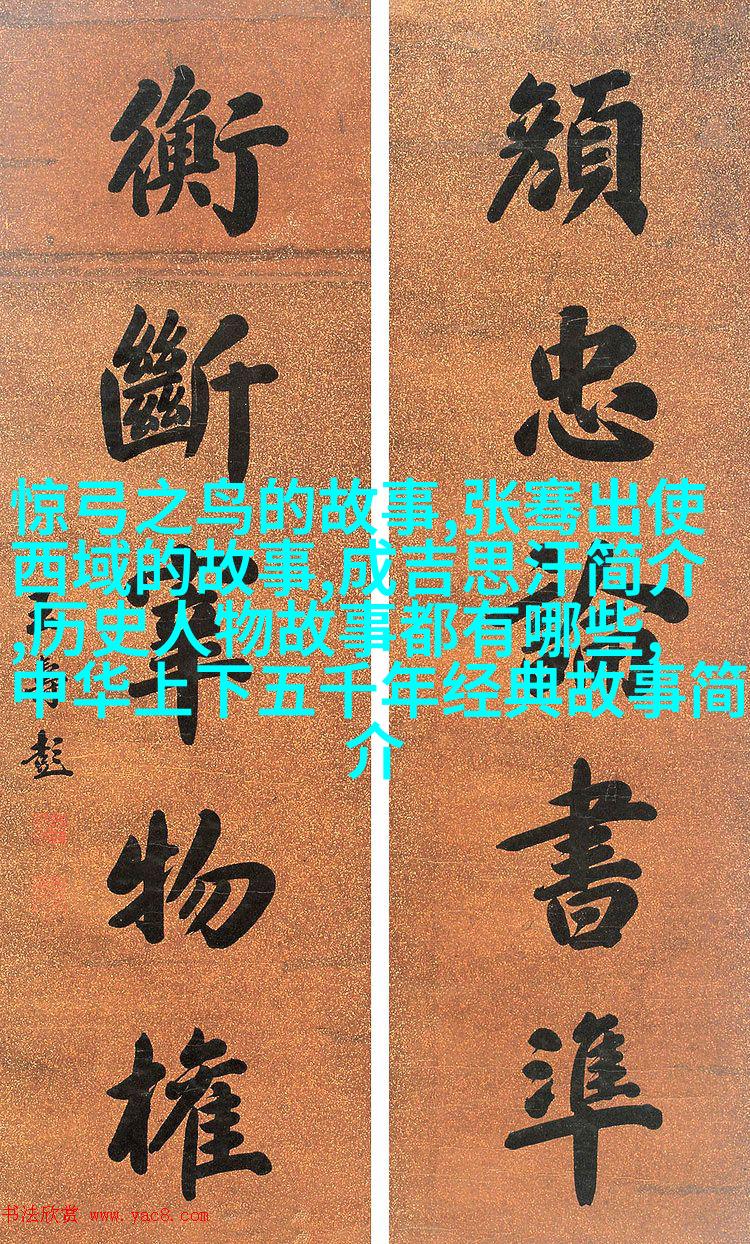 忠書準
衡斷宰物權
王壽彭
惊弓之鸟的故事,张骞出使
西域的故事,成吉思汗简介
,历史人物故事都有哪些,
中华上下五千年经典故事简
介
书法欣赏 www.yac8.com